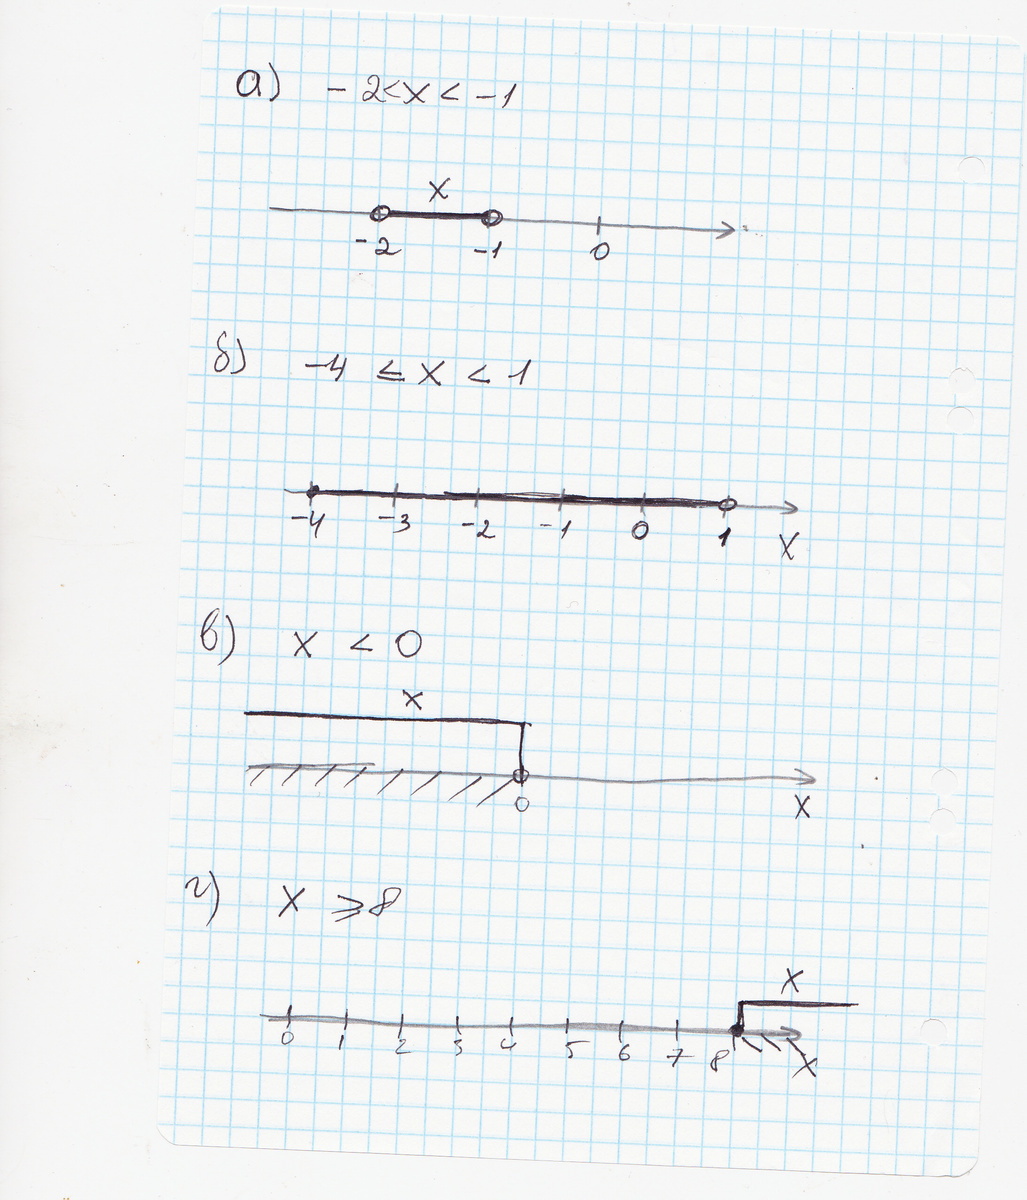 а) -2<x<-1
x
-2 -1 0
б) -4 ≤ x < 1
-4 -3 -2 -1 0 1 x
в) x < 0
x
0 x
г) x ≥ 8
x
0 1 2 3 4 5 6 7 8 x